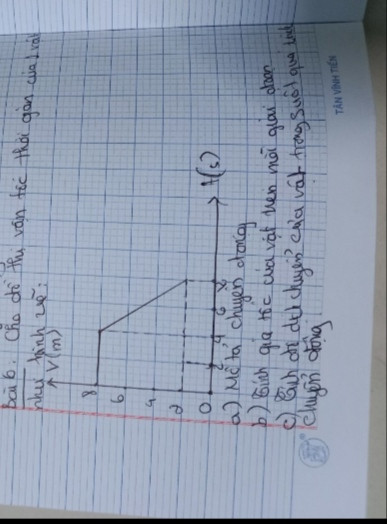 Bài 6. Cho đồ thị vận tốc thời gian của 1 vật
như hình vẽ:
V(m)
8
6
4
2
0
2
4
6
8
t(s)
a) Mô tả chuyển động
b) Tính gia tốc của vật trên mỗi giai đoạn
c) Tính độ dịch chuyển của vật trong suốt quá trình
chuyển động
TÂN VĨNH TIẾN